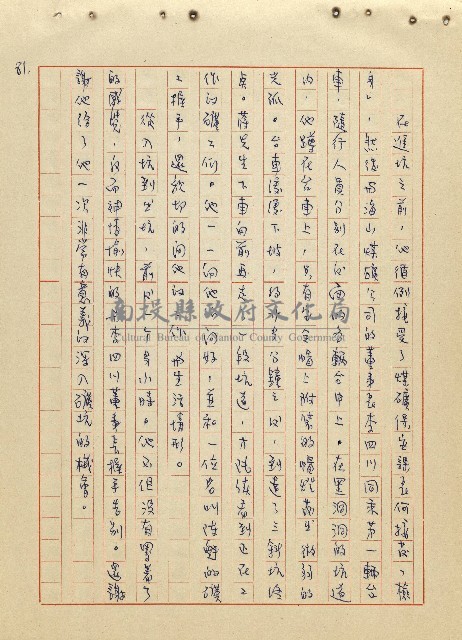 81.
在進坑之前,他循例接受了煤礦保安課長何接枝「檢
身」,然後與海山煤礦公司的董事長李四川同乘第一輛台
車,隨行人員分別在後面兩輛台車上。在黑洞洞的坑道
內,他蹲在台車上,只有安全帽上附裝的帽燈發出微弱的
光弧。台車緩緩下坡,分鐘之後,到達了三斜坑
。蔣先生下車向前再走一段坑道,才陸續看到正在工
作的礦工們。他一一向他們問好,並和一位名叫陳 的礦
工握手,還親切的問他的工作和生活情形。
從入坑到出坑,前後 半小時。他不但沒有累着了
的感覺,反而神情愉快的和李四川董事長握手告別。還謝
謝他給了他一次非常有意義的深入礦坑的機會。
南投縣政府文化局
Cultural Bureau of Nantou County Government